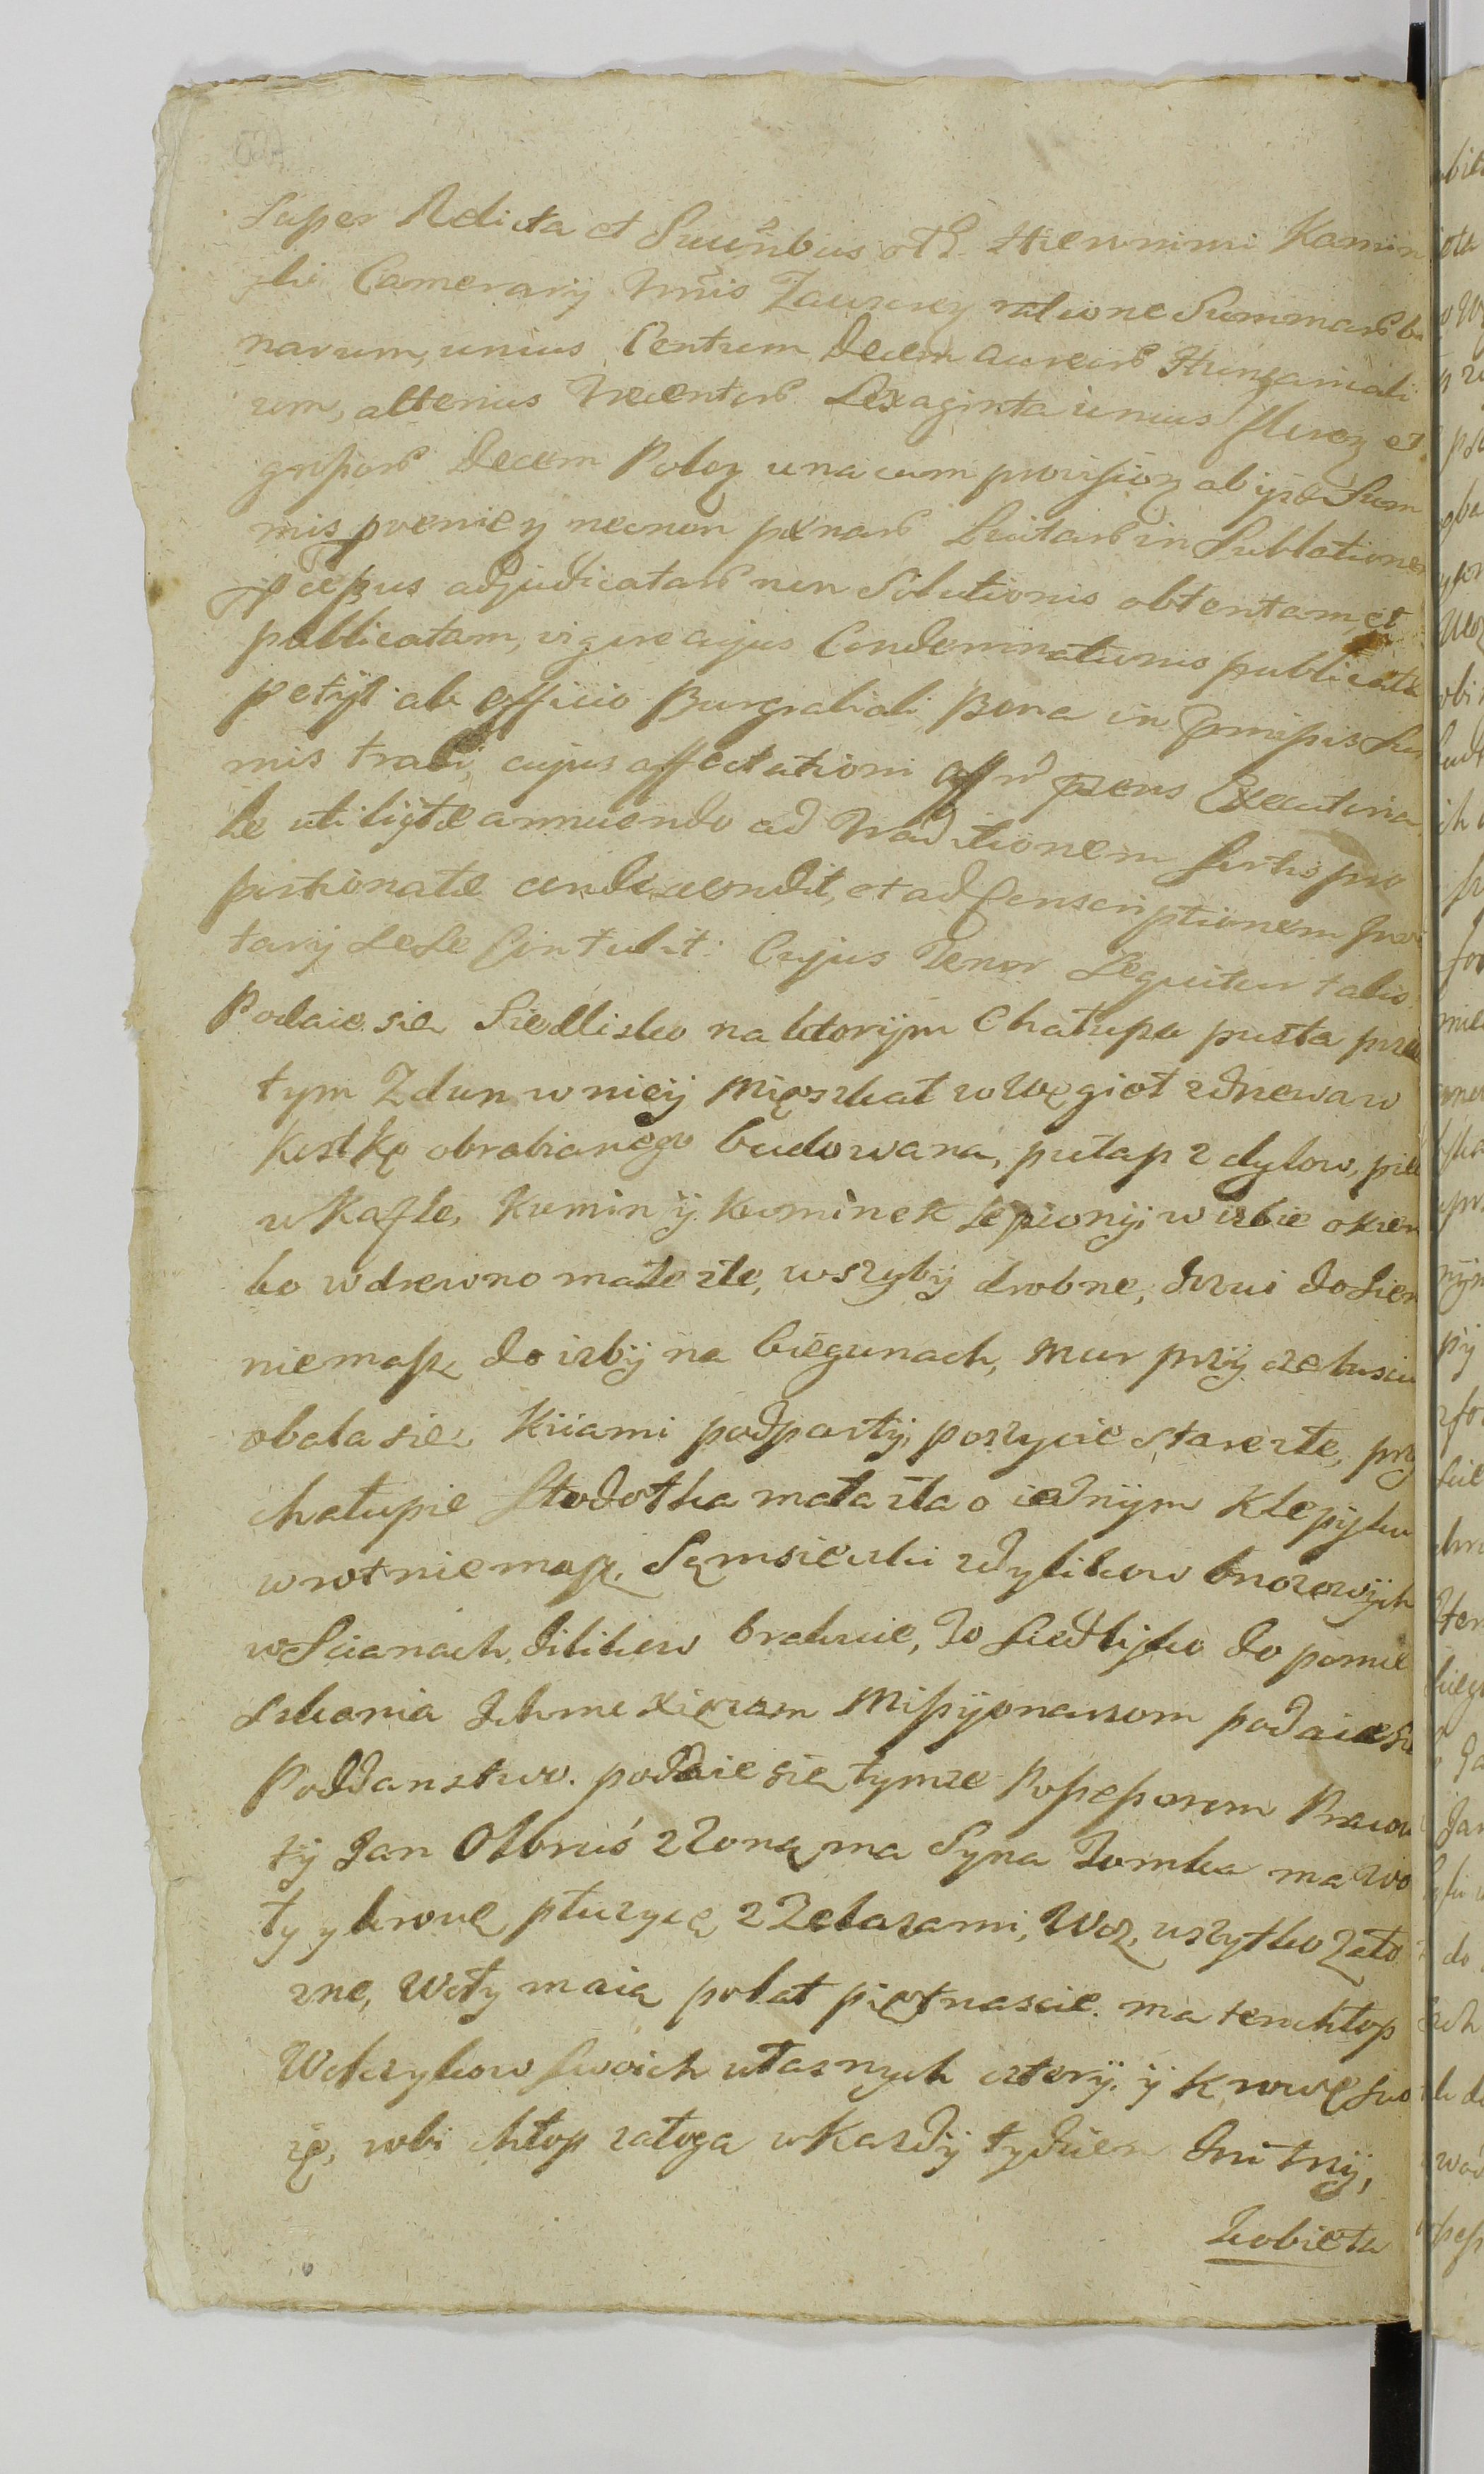 Super Relicta et Succribus olI. Hieronimi Kamin
ski Camerarij Trris Zawscrey ratione Summarum bi
narum, unius Centum Decem aureorum Hungaricali
um, alterius Trecentorum Sexaginta unius floreny et
grossorum Decem Poloy una cum provisiony ab ijsde Sum
mis provenieny necnon pœnarum Luitarum in Sublationem
pcessus adjudicatarum non Solutionis obtentam, et
publicatam, vigore cujus Condemnationis publicata
petijt ab officio Burgrabiali Bona in pmissis Sum
mis tradi, cujus affectationi offm præns Executina
le utiliJte annuendo ad Traditionem Sortis pro
portionate condescendit, et ad Conscriptionem Inven
tarij sese Contulit. Cujus Tenor Sequitur talis
Podaie się Siedlisko na ktorÿm Chałupa pusta przed
tym Zdun w nieÿ Mięszkał w węgieł zdrewa w
Kostkę obrabianego budowana, pułap z dylow, piec
w Kafle, Kumin ÿ Kominek lepionÿ, w izbie okien
ko w drewno małe złe, w szÿbÿ drobne, drzwi do Sien
niemasz, do izbÿ na biegunach, Mur przÿ czeluściu
obala się, Kiiami podpartÿ, poszycie stare złe, przy
chałupie Stodołka mała zła o iednÿm Klepisku
wrot niemasz, Sąmsieczki zdylikow brzozowÿch
w Scianach dilikow brakuie, To Siedlisko do pomie
szkania Ichmc Xięzam Missÿonarzom podaie się
Poddanstwo. podaie się tymze Possessorom Pracow
tÿ Jan Olbruś zżoną ma Syna Tomka ma Wo
ły y krowę płuzycę z Zelazami, Woz, wszytko zało
zne, Woły maią polat piętnascie. ma ten chłop
Wolczykow swoich własnych czterÿ ÿ Krowę swo
ię, robi chłop załoga w Kazdÿ tydzien dni trzÿ,
Kobieta